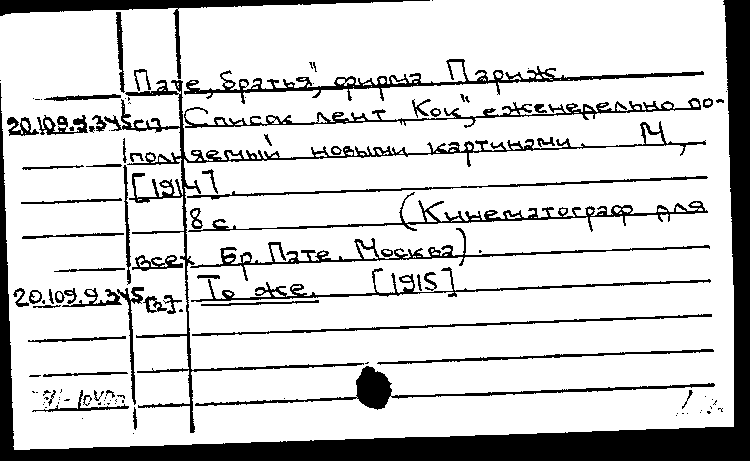 Пате, братья", фирма. Париж.
20.109.9.345[1]. Список лент "Кок", еженедельно по-
полняемый новыми картинами. М,
[1914].
8 с. (Кинематограф для
всех Бр. Пате. Москва).
20.109.9.345[2]. То же. [1915].